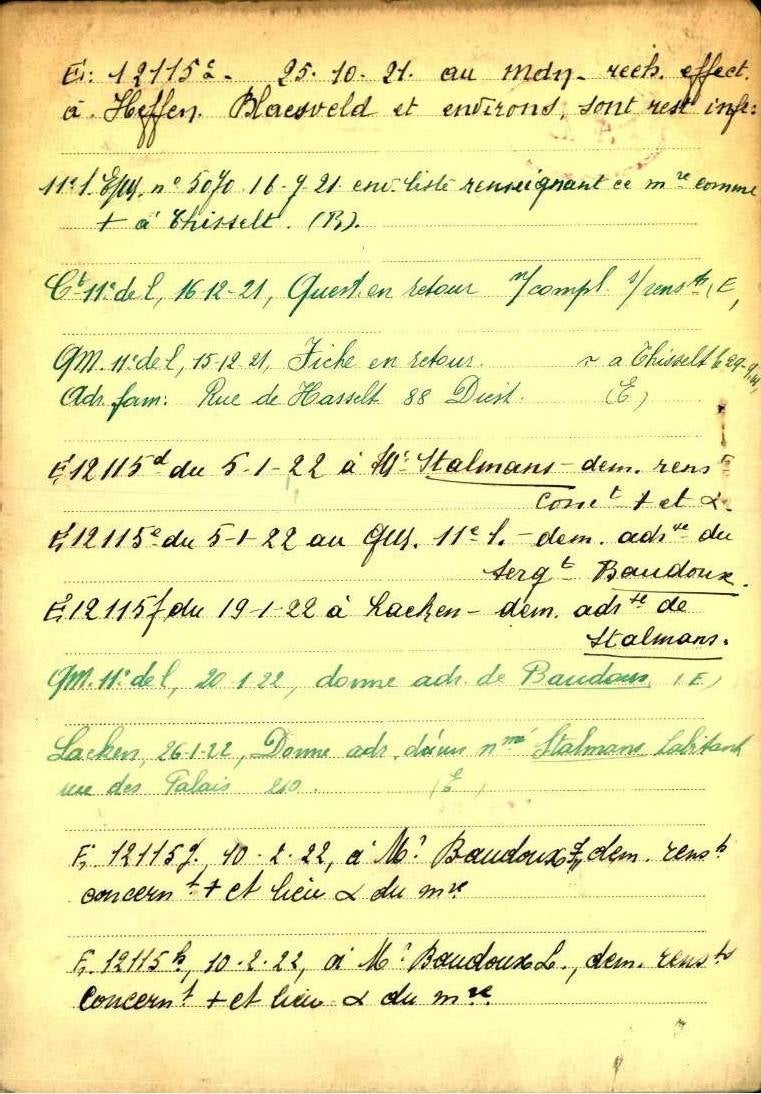 E: 12115c - 25.10.21. au mdn. rech. effect.
à Heffen. Blaesveld et environs, sont rest infr:
11e l. EM. n° 5070 16-9-21 env. liste renseignant ce mre comme
+ à Thisselt. (B).
Ct 11e de l, 16-12-21, Quest. en retour n/compl. s/rensts (E,
QM. 11e de l, 15-12-21, Fiche en retour. à Thisselt le 29-9-14,
Adr. fam: Rue de Hasselt 88 Diest. (E)
E, 12115d du 5-1-22 à Mr Stalmans - dem. rens
Connt + et α.
E, 12115e du 5-1-22 au QM. 11e l. - dem. adrse du
Sergt Baudoux.
E, 12115f du 19-1-22 à Laeken - dem. adrse de
Stalmans.
QM. 11e de l, 20-1-22, donne adr. de Baudoux, (E)
Laeken, 26-1-22, Donne adr. d'un nmé Stalmans habitant
rue des Palais 210. (E)
E, 12115g. 10-2-22, à Mr Baudoux, dem. rensts
concernt + et lieu α du mre
E. 12115h, 10-2-22, à Mr Baudoux L., dem. rensts
Concernt + et lieu α du mre